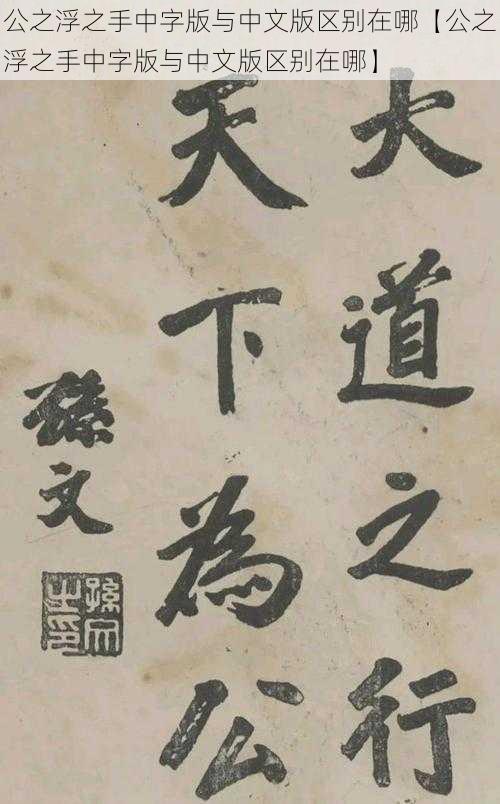 公之浮之手中字版与中文版区别在哪【公之
浮之手中字版与中文版区别在哪】
大道之行
天下為公
孫文
孫文之印